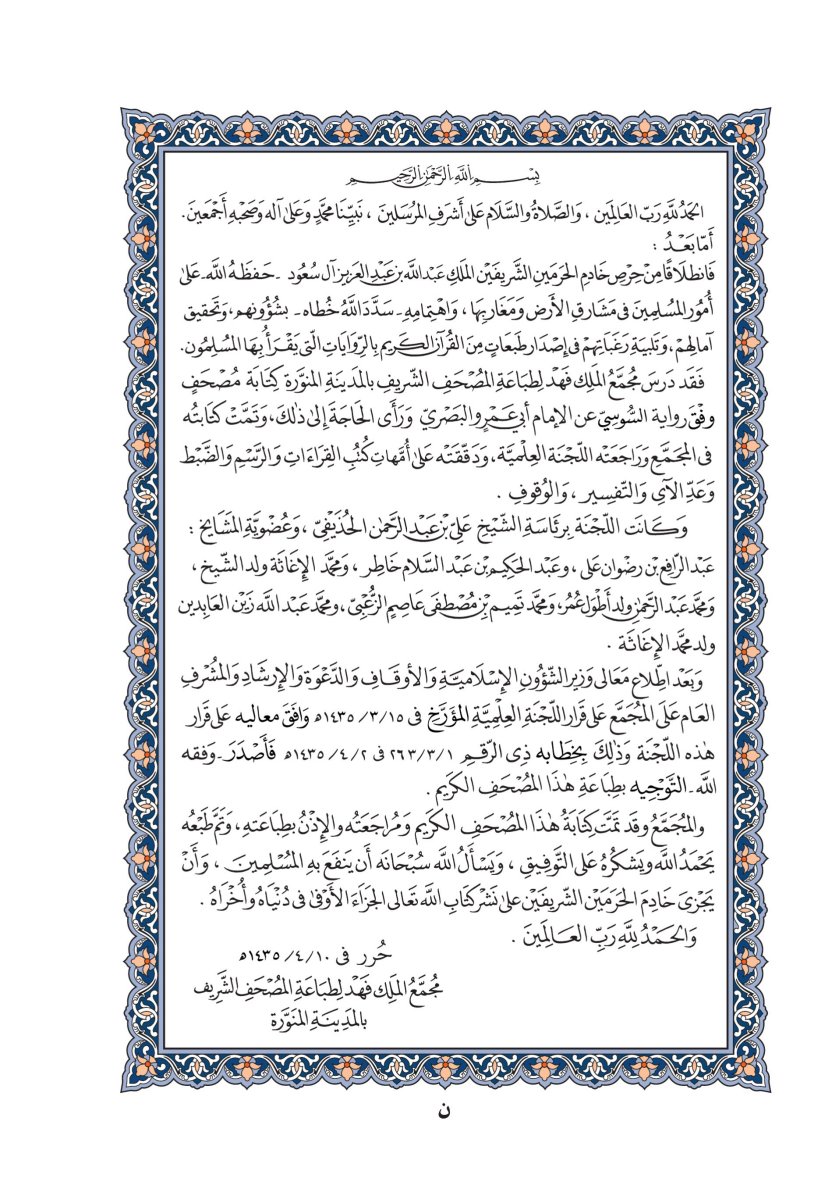 بِسْــمِ اللَّهِ الرَّحْمَٰنِ الرَّحِيـمِ
الحَمْدُ لِلَّهِ رَبِّ العَالَمِينَ ، وَالصَّلَاةُ وَالسَّلَامُ عَلَىٰ أَشْرَفِ المُرْسَلِينَ ، نَبِيِّنَا مُحَمَّدٍ وَعَلَىٰ آلِهِ وَصَحْبِهِ أَجْمَعِينَ.
أَمَّا بَعْـدُ :
فَانطِلَاقًا مِنْ حِرْصِ خَادِمِ الحَرَمَيْنِ الشَّرِيفَيْنِ المَلِكِ عَبْدِ اللَّهِ بْنِ عَبْدِ العَزِيزِ آل سُعُود ـ حَفِظَهُ اللَّه ـ عَلَىٰ
أُمُورِ المُسْلِمِينَ فِي مَشَارِقِ الأَرْضِ وَمَغَارِبِهَا ، وَاهْتِمَامِهِ ـ سَدَّدَ اللَّهُ خُطَاه ـ بِشُؤُونِهِم، وَتَحْقِيقِ
آمَالِهِمْ، وَتَلْبِيَةِ رَغَبَاتِهِمْ فِي إِصْدَارِ طَبَعَاتٍ مِنَ القُرْآنِ الكَرِيمِ بِالرِّوَايَاتِ الَّتِي يَقْرَأُ بِهَا المُسْلِمُونَ.
فَقَد دَرَسَ مُجَمَّعُ المَلِكِ فَهْد لِطِبَاعَةِ المُصْحَفِ الشَّرِيفِ بِالمَدِينَةِ المُنَوَّرَةِ كِتَابَةَ مُصْحَفٍ
وِفْقَ رِوَايَةِ السُّوسِيّ عَنِ الإِمَامِ أَبِي عَمْرٍو البَصْرِيّ وَرَأَى الحَاجَةَ إِلَىٰ ذٰلِكَ، وَتَمَّتْ كِتَابَتُه
فِي المُجَمَّعِ وَرَاجَعَتْه اللَّجْنَة العِلْمِيَّة، وَدَقَّقَتْه عَلَىٰ أُمَّهَاتِ كُتُبِ القِرَاءَاتِ وَالرَّسْمِ وَالضَّبْطِ
وَعَدِّ الآيِ وَالتَّفْسِيرِ ، وَالوُقُوفِ .
وَكَانَت اللَّجْنَة بِرِئَاسَةِ الشَّيْخِ عَلِيِّ بْنِ عَبْدِ الرَّحْمٰنِ الحُذَيْفِيِّ ، وَعُضْوِيَّةِ المَشَايِخِ :
عَبْدِ الرَّافِعِ بْنِ رِضْوَان عَلِي ، وعَبْدِ الحَكِيمِ بْنِ عَبْدِ السَّلَام خَاطِر ، وَمُحَمَّد الإِغَاثَة وَلد الشَّيْخ ،
وَمُحَمَّد عَبْدِ الرَّحْمٰنِ وَلد أَطْوَل عُمُر، وَمُحَمَّد تَمِيم بْنِ مُصْطَفَى عَاصِمٍ الزُّعْبِيّ ، ومُحَمَّد عَبْدِ اللَّهِ زَيْن العَابِدين
ولد مُحَمَّد الإِغَاثَة .
وَبَعْدَ اطِّلَاعِ مَعَالِي وَزِيرِ الشُّؤُونِ الإِسْلَامِيَّةِ وَالأَوْقَافِ وَالدَّعْوَةِ وَالإِرْشَادِ وَالمُشْرِفِ
العَام عَلَى المُجَمَّعِ عَلَى قَرَارِ اللَّجْنَةِ العِلْمِيَّةِ المُؤَرَّخِ في ١٤٣٥/٣/١٥ه وَافَقَ معاليه على قَرَارِ
هٰذِه اللَّجْنَة وَذٰلِكَ بِخِطَابِه ذِي الرَّقْمِ ٢٦٣/٣/١ في ١٤٣٥/٤/٢ه فَأَصْدَرَ ـ وفقه
اللَّه ـ التَّوْجِيه بِطِبَاعَةِ هٰذَا المُصْحَفِ الكَرِيمِ .
والمُجَمَّعُ وقَد تَمَّتْ كِتَابَةُ هٰذَا المُصْحَفِ الكَرِيمِ وَمُرَاجَعَتُه والإِذْنُ بِطِبَاعَتِهِ، وَتَمَّ طَبْعُه
يَحْمَدُ اللَّه وَيَشْكُرُهُ عَلَى التَّوْفِيقِ ، وَيَسْأَلُ اللَّه سُبْحَانَه أَن يَنْفَعَ بِهِ المُسْلِمِينَ ، وَأَنْ
يَجْزِيَ خَادِمَ الحَرَمَيْنِ الشَّرِيفَيْنِ عَلَىٰ نَشْرِ كِتَابِ اللَّهِ تَعَالَى الجَزَاءَ الأَوْفَى فِي دُنْيَاهُ وأُخْرَاهُ .
وَالحَمْدُ لِلَّهِ رَبِّ العَالَمِينَ .
حُرر في ١٤٣٥/٤/١٠ه
مُجَمَّعُ المَلِكِ فَهْد لِطِبَاعَةِ المُصْحَفِ الشَّرِيفِ
بِالمَدِينَةِ المُنَوَّرَةِ
ن